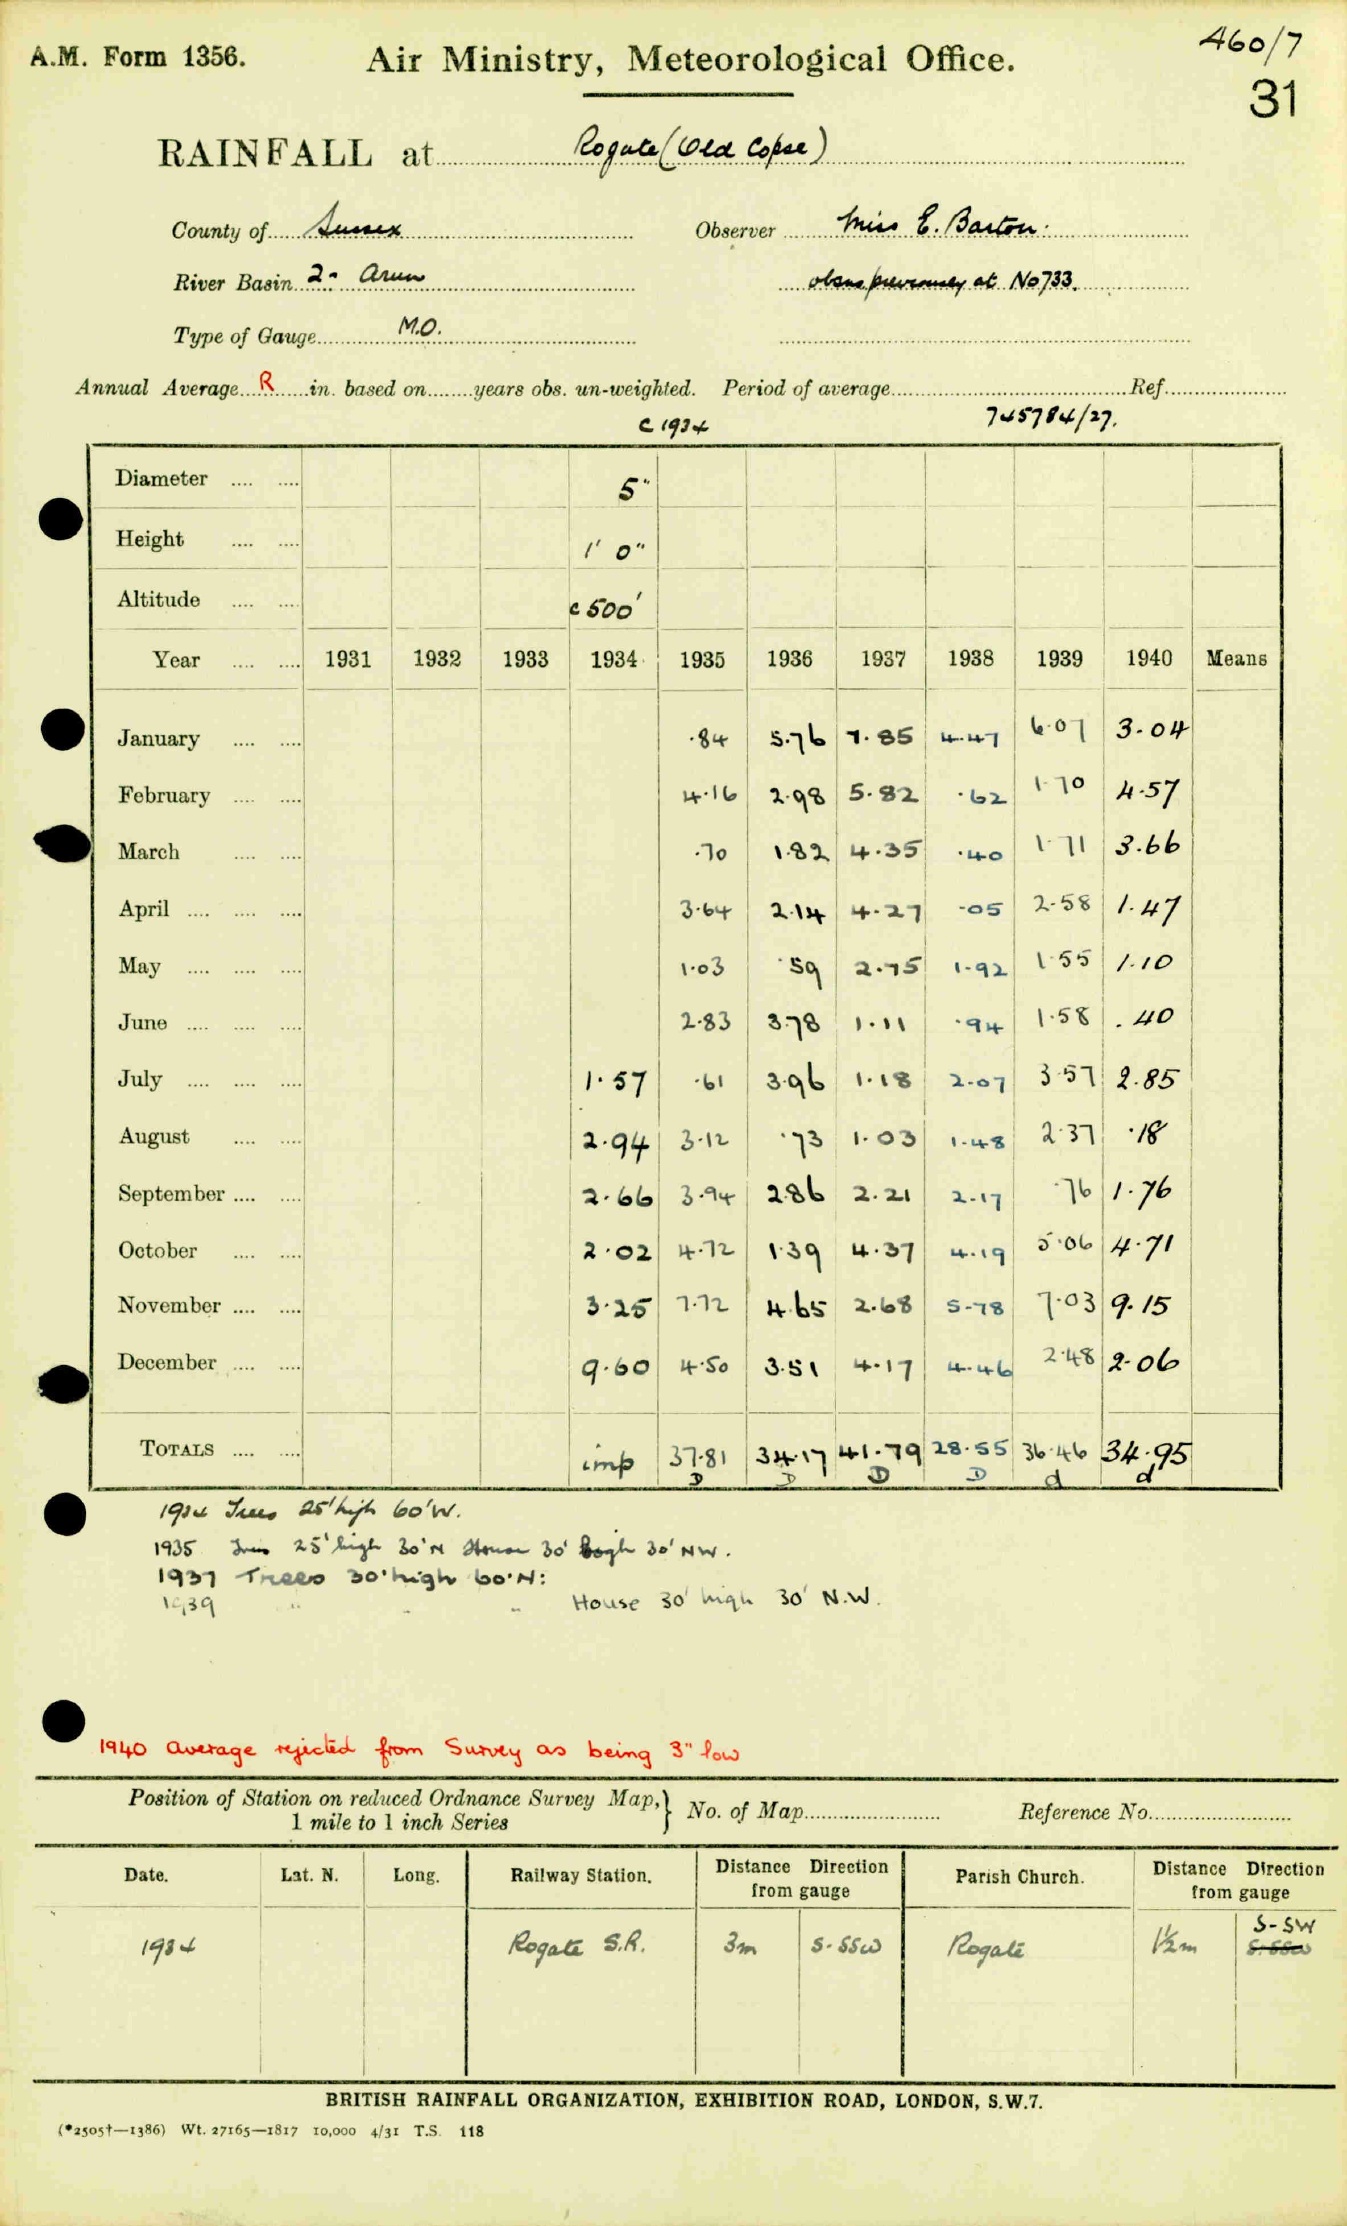 A.M. Form 1356.
Air Ministry, Meteorological Office.
460/7
31
RAINFALL at Rogate (Old Copse)
County of Sussex
Observer Miss E. Barton.
River Basin 2: Arun
obsns previously at No 733.
Type of Gauge M.O.
Annual Average R in. based on years obs. un-weighted. Period of average Ref.
c 1934 745784/27.
Diameter .... .... 5"
Height .... .... 1' 0"
Altitude .... .... c 500'
Year .... .... 1931 1932 1933 1934 1935 1936 1937 1938 1939 1940 Means
January .... .... .84 5.76 7.85 4.47 6.07 3.04
February .... .... 4.16 2.98 5.82 .62 1.70 4.57
March .... .... .70 1.82 4.35 .40 1.71 3.66
April .... .... .... 3.64 2.14 4.27 .05 2.58 1.47
May .... .... .... 1.03 .59 2.75 1.92 1.55 1.10
June .... .... .... 2.83 3.78 1.11 .94 1.58 .40
July .... .... .... 1.57 .61 3.96 1.18 2.07 3.57 2.85
August .... .... 2.94 3.12 .73 1.03 1.48 2.37 .18
September .... .... 2.66 3.94 2.86 2.21 2.17 .76 1.76
October .... .... 2.02 4.72 1.39 4.37 4.19 5.06 4.71
November .... .... 3.25 7.72 4.65 2.68 5.78 7.03 9.15
December .... .... 9.60 4.50 3.51 4.17 4.46 2.48 2.06
TOTALS .... .... imp 37.81 34.17 41.79 28.55 36.46 34.95
D D D D d d
1934 Trees 25' high 60' W.
1935 Trees 25' high 30' N House 30' high 30' NW.
1937 Trees 30' high 60' N:
1939 " " " House 30' high 30' N.W.
1940 average rejected from Survey as being 3" low
Position of Station on reduced Ordnance Survey Map, } No. of Map Reference No.
1 mile to 1 inch Series
Date. Lat. N. Long. Railway Station. Distance Direction from gauge Parish Church. Distance Direction from gauge
S-SW
1934 Rogate S.R. 3m S-SSW Rogate 1½m S-SSW
BRITISH RAINFALL ORGANIZATION, EXHIBITION ROAD, LONDON, S.W.7.
(*2505†—1386) Wt. 27165—1817 10,000 4/31 T.S. 118